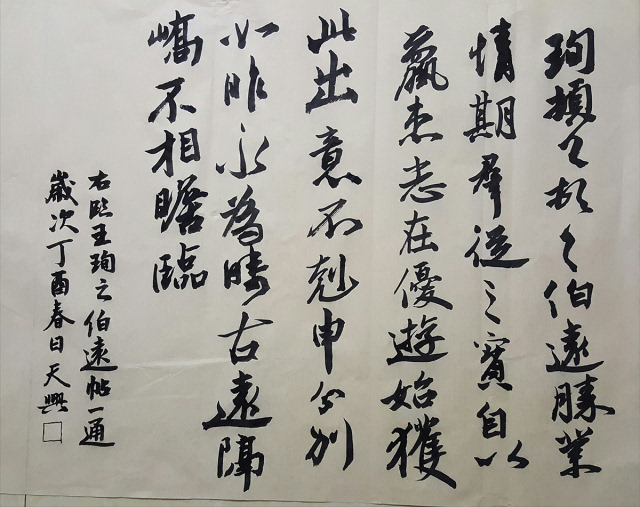 珣頓首頓首伯遠勝業
情期羣從之寶自以
羸患志在優遊始獲
此出意不剋申分別
如昨永為疇古遠隔
嶠不相瞻臨
右臨王珣之伯遠帖一通
歲次丁酉春日天興